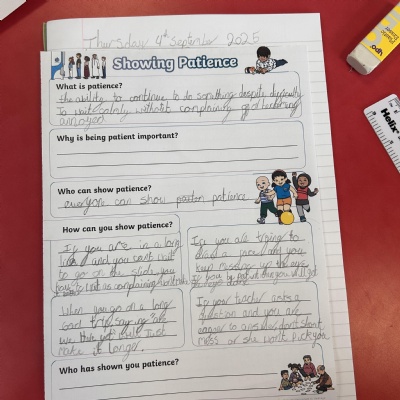 Thursday 4th September 2025
Showing Patience
What is patience?
the ability to continue to do something despite difficulty
To wait calmly without complaining or
annoyed
Why is being patient important?
Who can show patience?
everyone can show patience
How can you show patience?
If you are in a long
line and you can't wait
to go on the slide, you
have to wait
If you are trying to
and you
keep messing up
you will get
When you go on a long
road trip, saying "are
we there yet" will just
make it longer.
If your teacher asks a
question and you are
to answer, don't shout
or she won't pick you
Who has shown you patience?
Helix